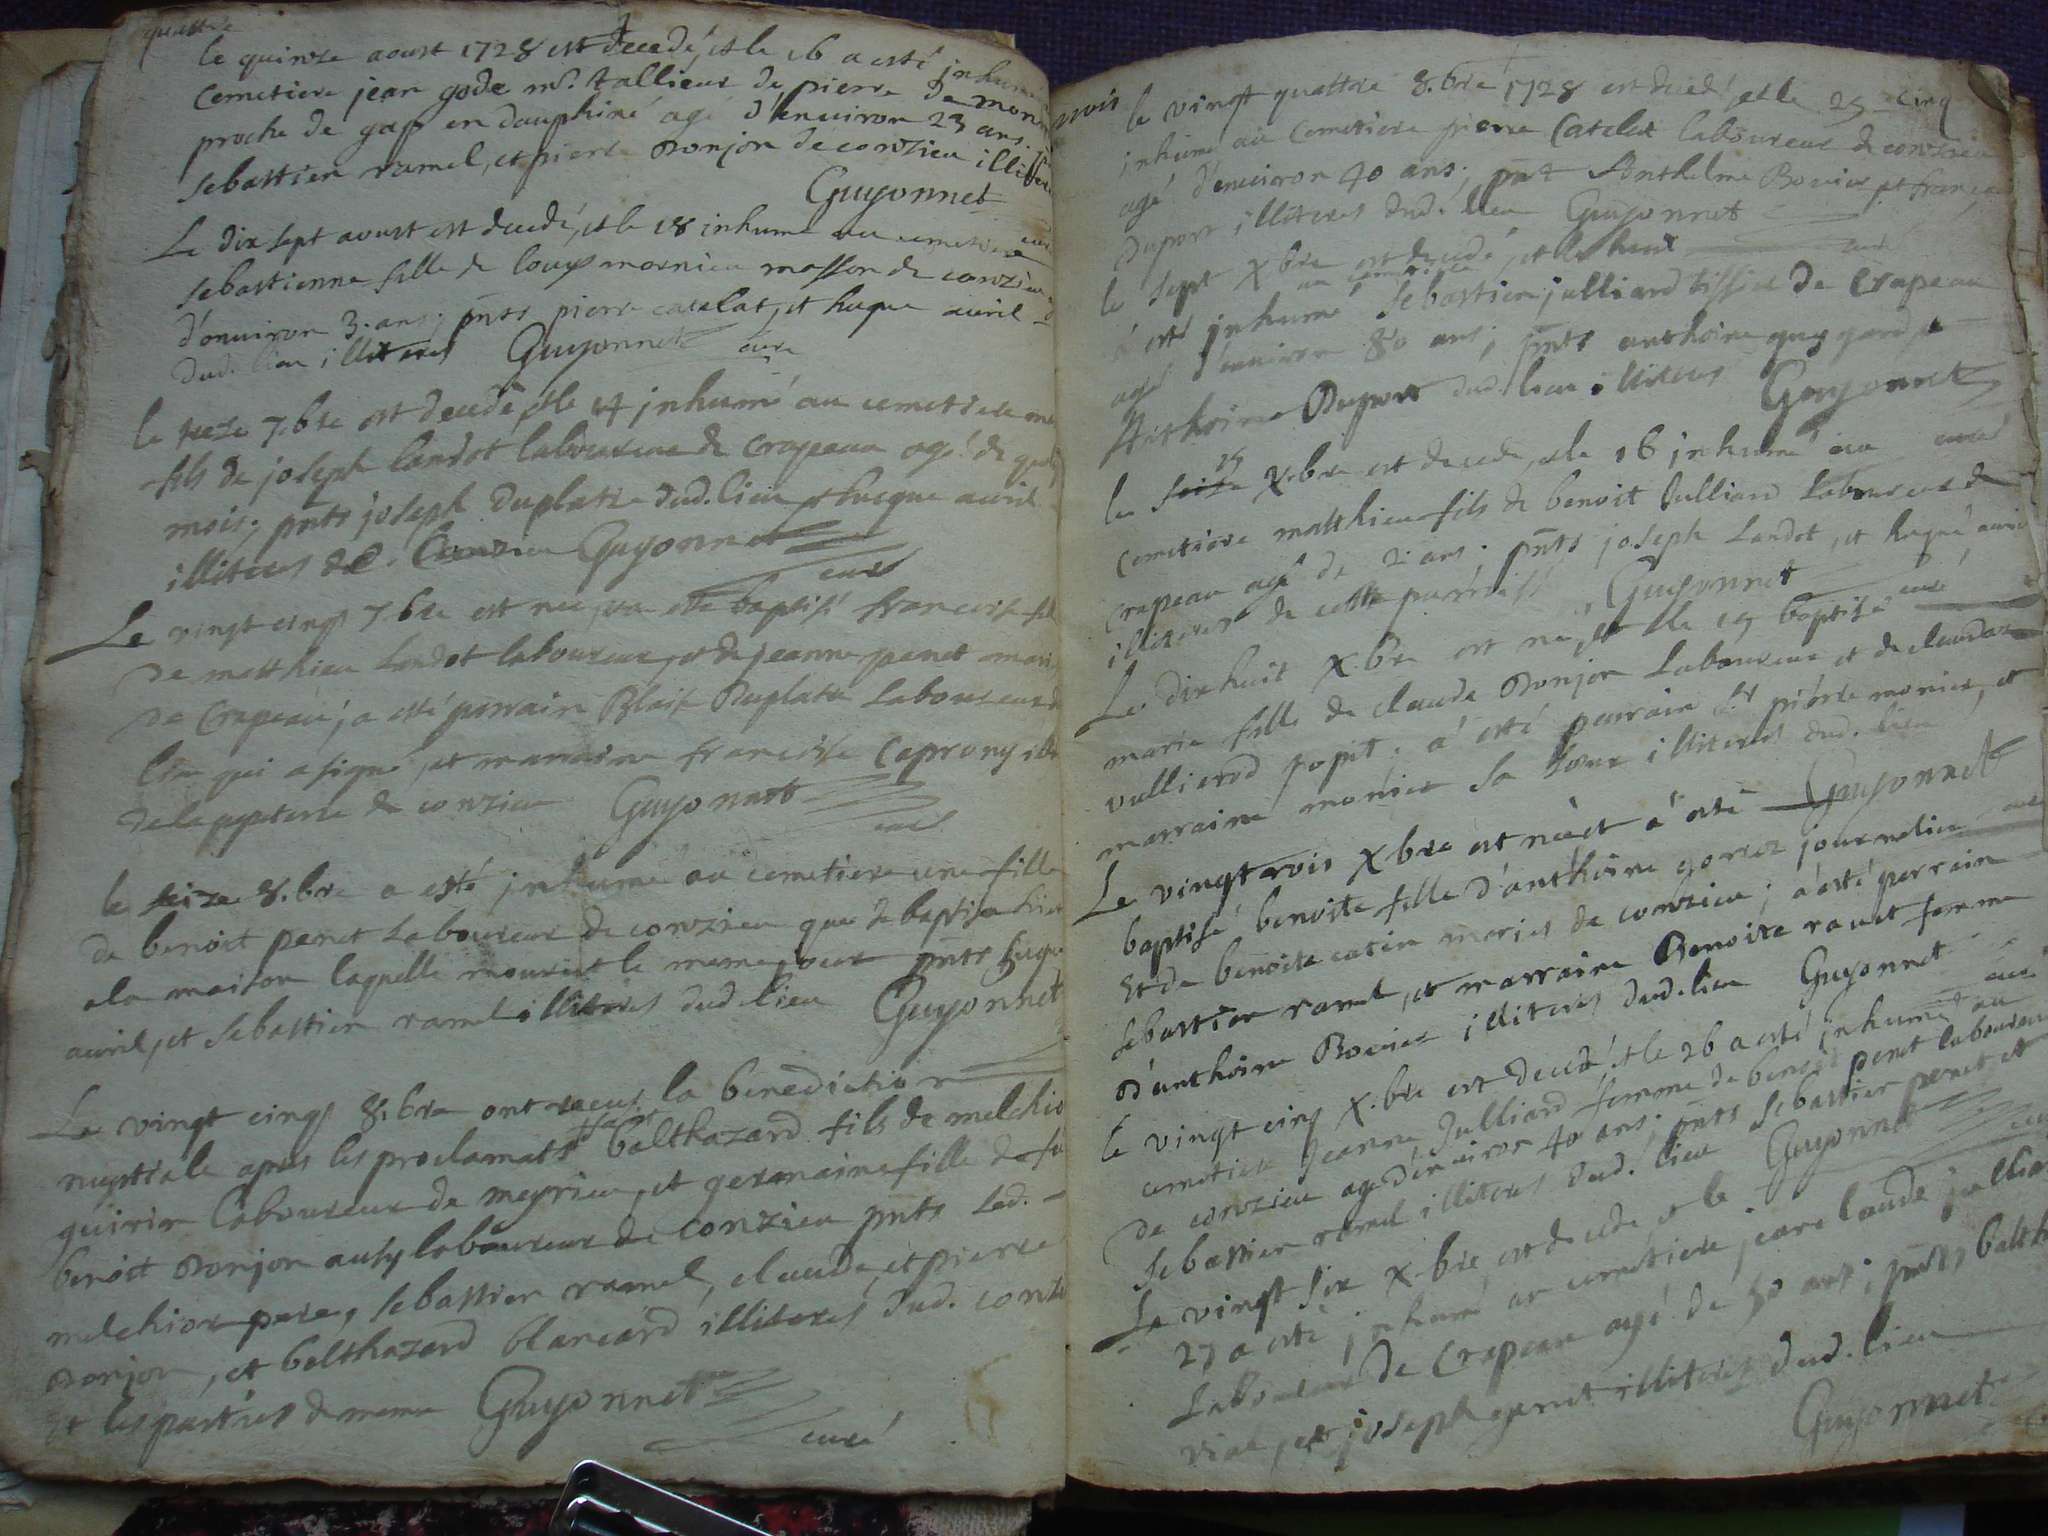 quattre
le quinze aoust 1728 est decedé, et le 16 a esté inhumé
cemetiere jean gode mr. tallieur de pierre de
proche de gap en dauphiné agé d'environ 23 ans.
sebastien ramel, et pierre Donjon de conzieu
Guyonnet
curé
Le dix sept aoust est decedé, et le 18 inhumé au cemetiere
sebastienne fille de louys mornieu masson de conzieu
d'environ 3. ans; pnts pierre catelat, et hugue avril
dud. lieu illiteres Guyonnet curé
le treze 7.bre est decedé, et le 14 inhumé au cemetiere
fils de joseph landot laboureur de Crapeau agé de
mois; pnts joseph Duplatre dud. lieu et hugue avril
illiteres de Conzieu Guyonnet
curé
Le vingt cinq 7.bre est nee, et a esté baptisé francoise
de matthieu landot laboureur, et de jeanne penet
de Crapeau; a esté parrain Blaise Duplatre laboureur
lieu qui a signé, et marraine francoise
de conzieu Guyonnet
curé
le seize 8.bre a esté inhumé au cemetiere une fille
de benoit penet laboureur de conzieu que
a la maison laquelle mourut le meme jour pnts hugue
avril, et sebastien ramel illiteres dud. lieu Guyonnet
Le vingt cinq 8.bre ont receus la benediction
nuptiale apres les proclamats balthazard fils de melchior
guirin laboureur de meyrieu, et germaine fille de
benoit Donjon aussy laboureur de conzieu pnts led.
melchior pere, sebastien ramel, claude, et pierre
Donjon, et balthazard blancard illiteres dud.
et les parties de meme Guyonnet
curé
cinq
le vingt quattre 8.bre 1728 est decedé, et le 25
inhumé au cemetiere pierre Catelat laboureur de conzieu
agé d'environ 40 ans; pnt Anthelme Bovier, et
Duport illiteres dud. lieu Guyonnet
curé
le sept X.bre est decedé, et le huit
au cemetiere
a esté inhumé Sebastien julliard tissier de Crapeau
agé d'environ 80 ans; pnts anthoine guygard, et
Anthoine Duport dud. lieu illiteres Guyonnet
curé
15
le seize X.bre est decedé, et le 16 inhumé au
cemetiere matthieu fils de benoit Julliard laboureur de
crapeau agé de 2 ans. pnts joseph landot, et hugue avril
illiteres de cette paroisse Guyonnet
curé
Le dixhuit X.bre est née, et le 19 baptisé
marie fille de claude Donjon laboureur et de claudaz
vullierod a esté parrain Sr pierre monier, et
marraine monier sa soeur illiteres dud. lieu
Guyonnet
Le vingtrois X.bre est née et a esté
baptisé benoite fille d'anthoine journelier
Et de benoite catin mariés de conzieu; a esté parrain
sebastien ramel, et marraine Benoite femme
d'anthoine Bovier illiteres dud. lieu Guyonnet
curé
le vingt cinq X.bre est decedé, et le 26 a esté inhumé au
cemetiere Jeanne Julliard femme de benoit penet laboureur
de conzieu agé d'environ 40 ans; pnts Sebastien penet, et
Sebastien ramel illiteres dud. lieu Guyonnet
curé
Le vingt six X.bre est decedé et le
27 a esté inhumé au cemetiere jean claude
Laboureur de Crapeau agé de 50 ans; pnts
vial, et joseph illiteres dud. lieu
Guyonnet